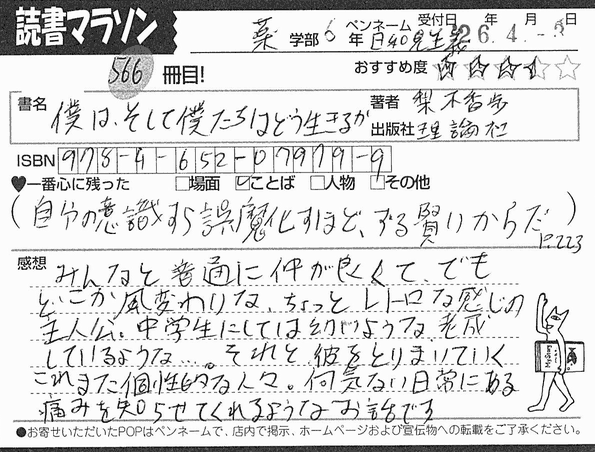 読書マラソン
薬 学部 6 年 ペンネーム 日和見主義 受付日 年 月 日
26.4.-5
566 冊目! おすすめ度
書名 僕は、そして僕たちはどう生きるか 著者 梨木香歩
出版社 理論社
ISBN 978-4-652-07979-9
♥一番心に残った □場面 ☑ことば □人物 □その他
(自分の意識すら誤魔化すほど、ずる賢いからだ)
P.223
感想 みんなと普通に仲が良くて、でも
どこか風変わりな、ちょっとレトロな感じの
主人公。中学生にしては幼いような、老成
しているような…。それと、彼をとりまいていく
これまた個性的な人々。何気ない日常にある
痛みを知らせてくれるようなお話です
●お寄せいただいたPOPはペンネームで、店内で掲示、ホームページおよび宣伝物への転載をご了承ください。